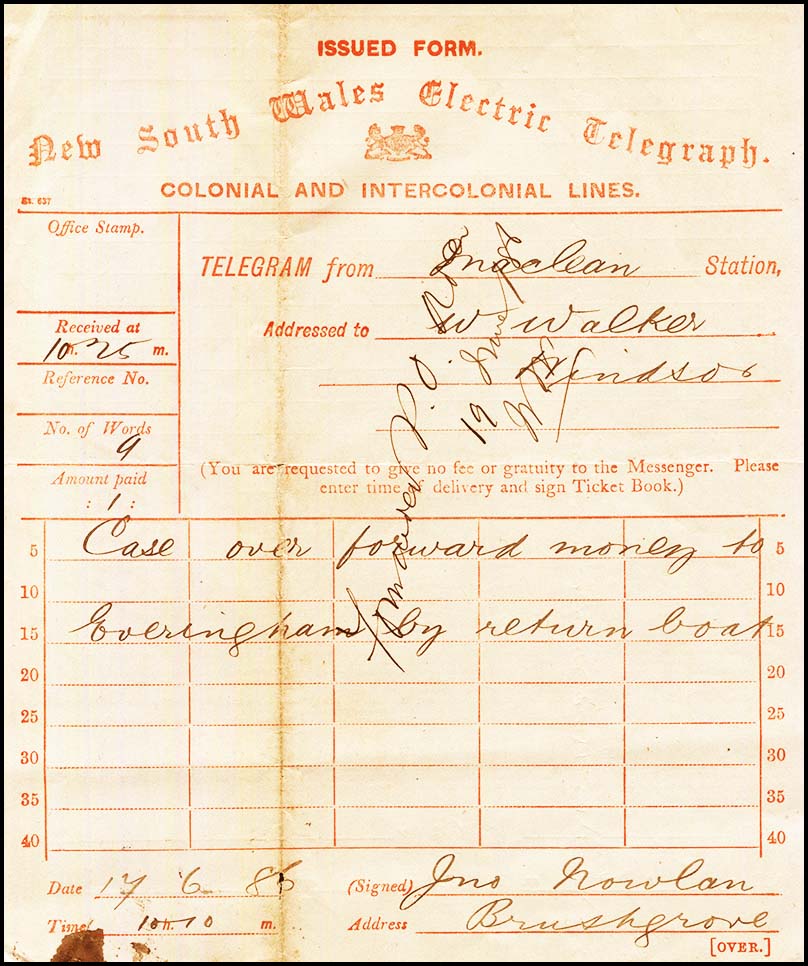 ISSUED FORM.
New South Wales Electric Telegraph.
COLONIAL AND INTERCOLONIAL LINES.
St. 637
Office Stamp.
TELEGRAM from Maclean Station,
Received at
10 h. 25 m.
Addressed to W Walker
Windsor
Reference No.
No. of Words
9
Amount paid
: 1 :
(You are requested to give no fee or gratuity to the Messenger. Please
enter time of delivery and sign Ticket Book.)
P. O.
19
5 Case over forward money to 5
10 10
15 Everingham by return boat 15
20 20
25 25
30 30
35 35
40 40
Date 17 6 86 (Signed) Jno Nowlan
Time 10 h. 10 m. Address Brushgrove
[OVER.]